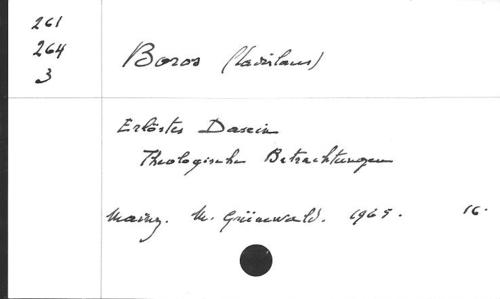 261
264
3
Boros (Ladislaus)
Erlöstes Dasein
Theologische Betrachtungen
Mainz. M. Grünewald. 1965. 16.